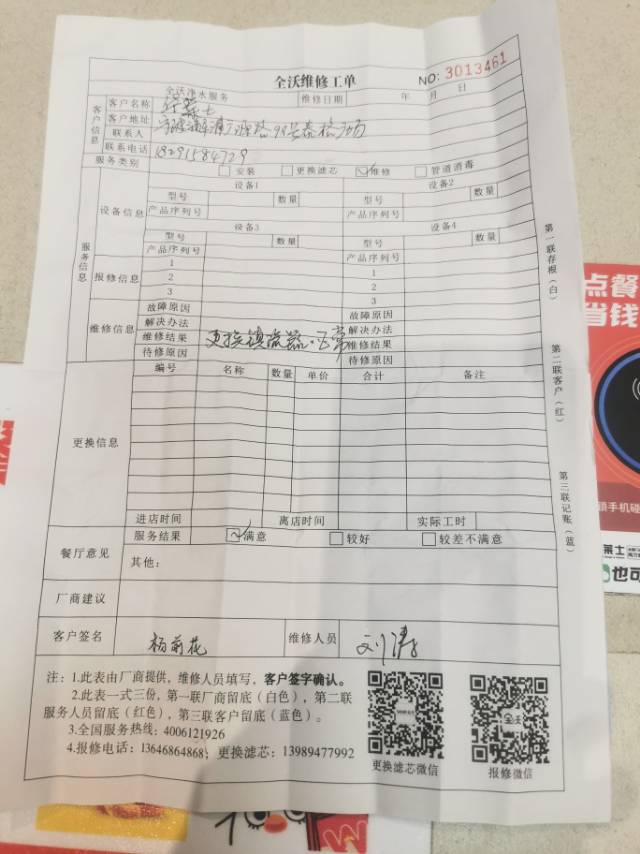 全沃维修工单
NO: 3013461
全沃净水服务
维修日期 年 月 日
客户信息
客户名称
客户地址
联系人
联系电话 18291584729
服务类别 安装 更换滤芯 维修 管道消毒
服务信息
设备信息
设备1 设备2
型号 数量 型号 数量
产品序列号 产品序列号
设备3 设备4
型号 数量 型号 数量
产品序列号 产品序列号
报修信息
1 1
2 2
3 3
维修信息
故障原因 故障原因
解决办法 解决办法
维修结果 更换镇流器.正常 维修结果
待修原因 待修原因
更换信息
编号 名称 数量 单价 合计 备注
进店时间 离店时间 实际工时
餐厅意见
服务结果 满意 较好 较差不满意
其他:
厂商建议
客户签名 杨菊花 维修人员 刘涛
注: 1.此表由厂商提供, 维修人员填写, 客户签字确认。
2.此表一式三份, 第一联厂商留底(白色), 第二联
服务人员留底(红色), 第三联客户留底(蓝色)。
3.全国服务热线: 4006121926
4.报修电话: 13646864868; 更换滤芯: 13989477992
更换滤芯微信
报修微信
全沃
第一联存根(白)
第二联客户(红)
第三联记账(蓝)
点餐
省钱
莱士
也可